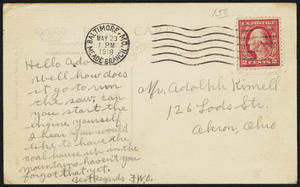 1.50
BALTIMORE, MD.
MAY 23
1 PM
1918
MEADE BRANCH
U.S. POSTAGE
2 CENTS 2
Hello Ado
Well how does
it go to run
the saw, can
you start the
engine yourself
I hear you would
like to have the
coal house up in the
mountains haven't you
forgot that yet.
Best Regards F.W.O.
Mr. Adolph Kimell
126 Lods Str.
Akron, Ohio